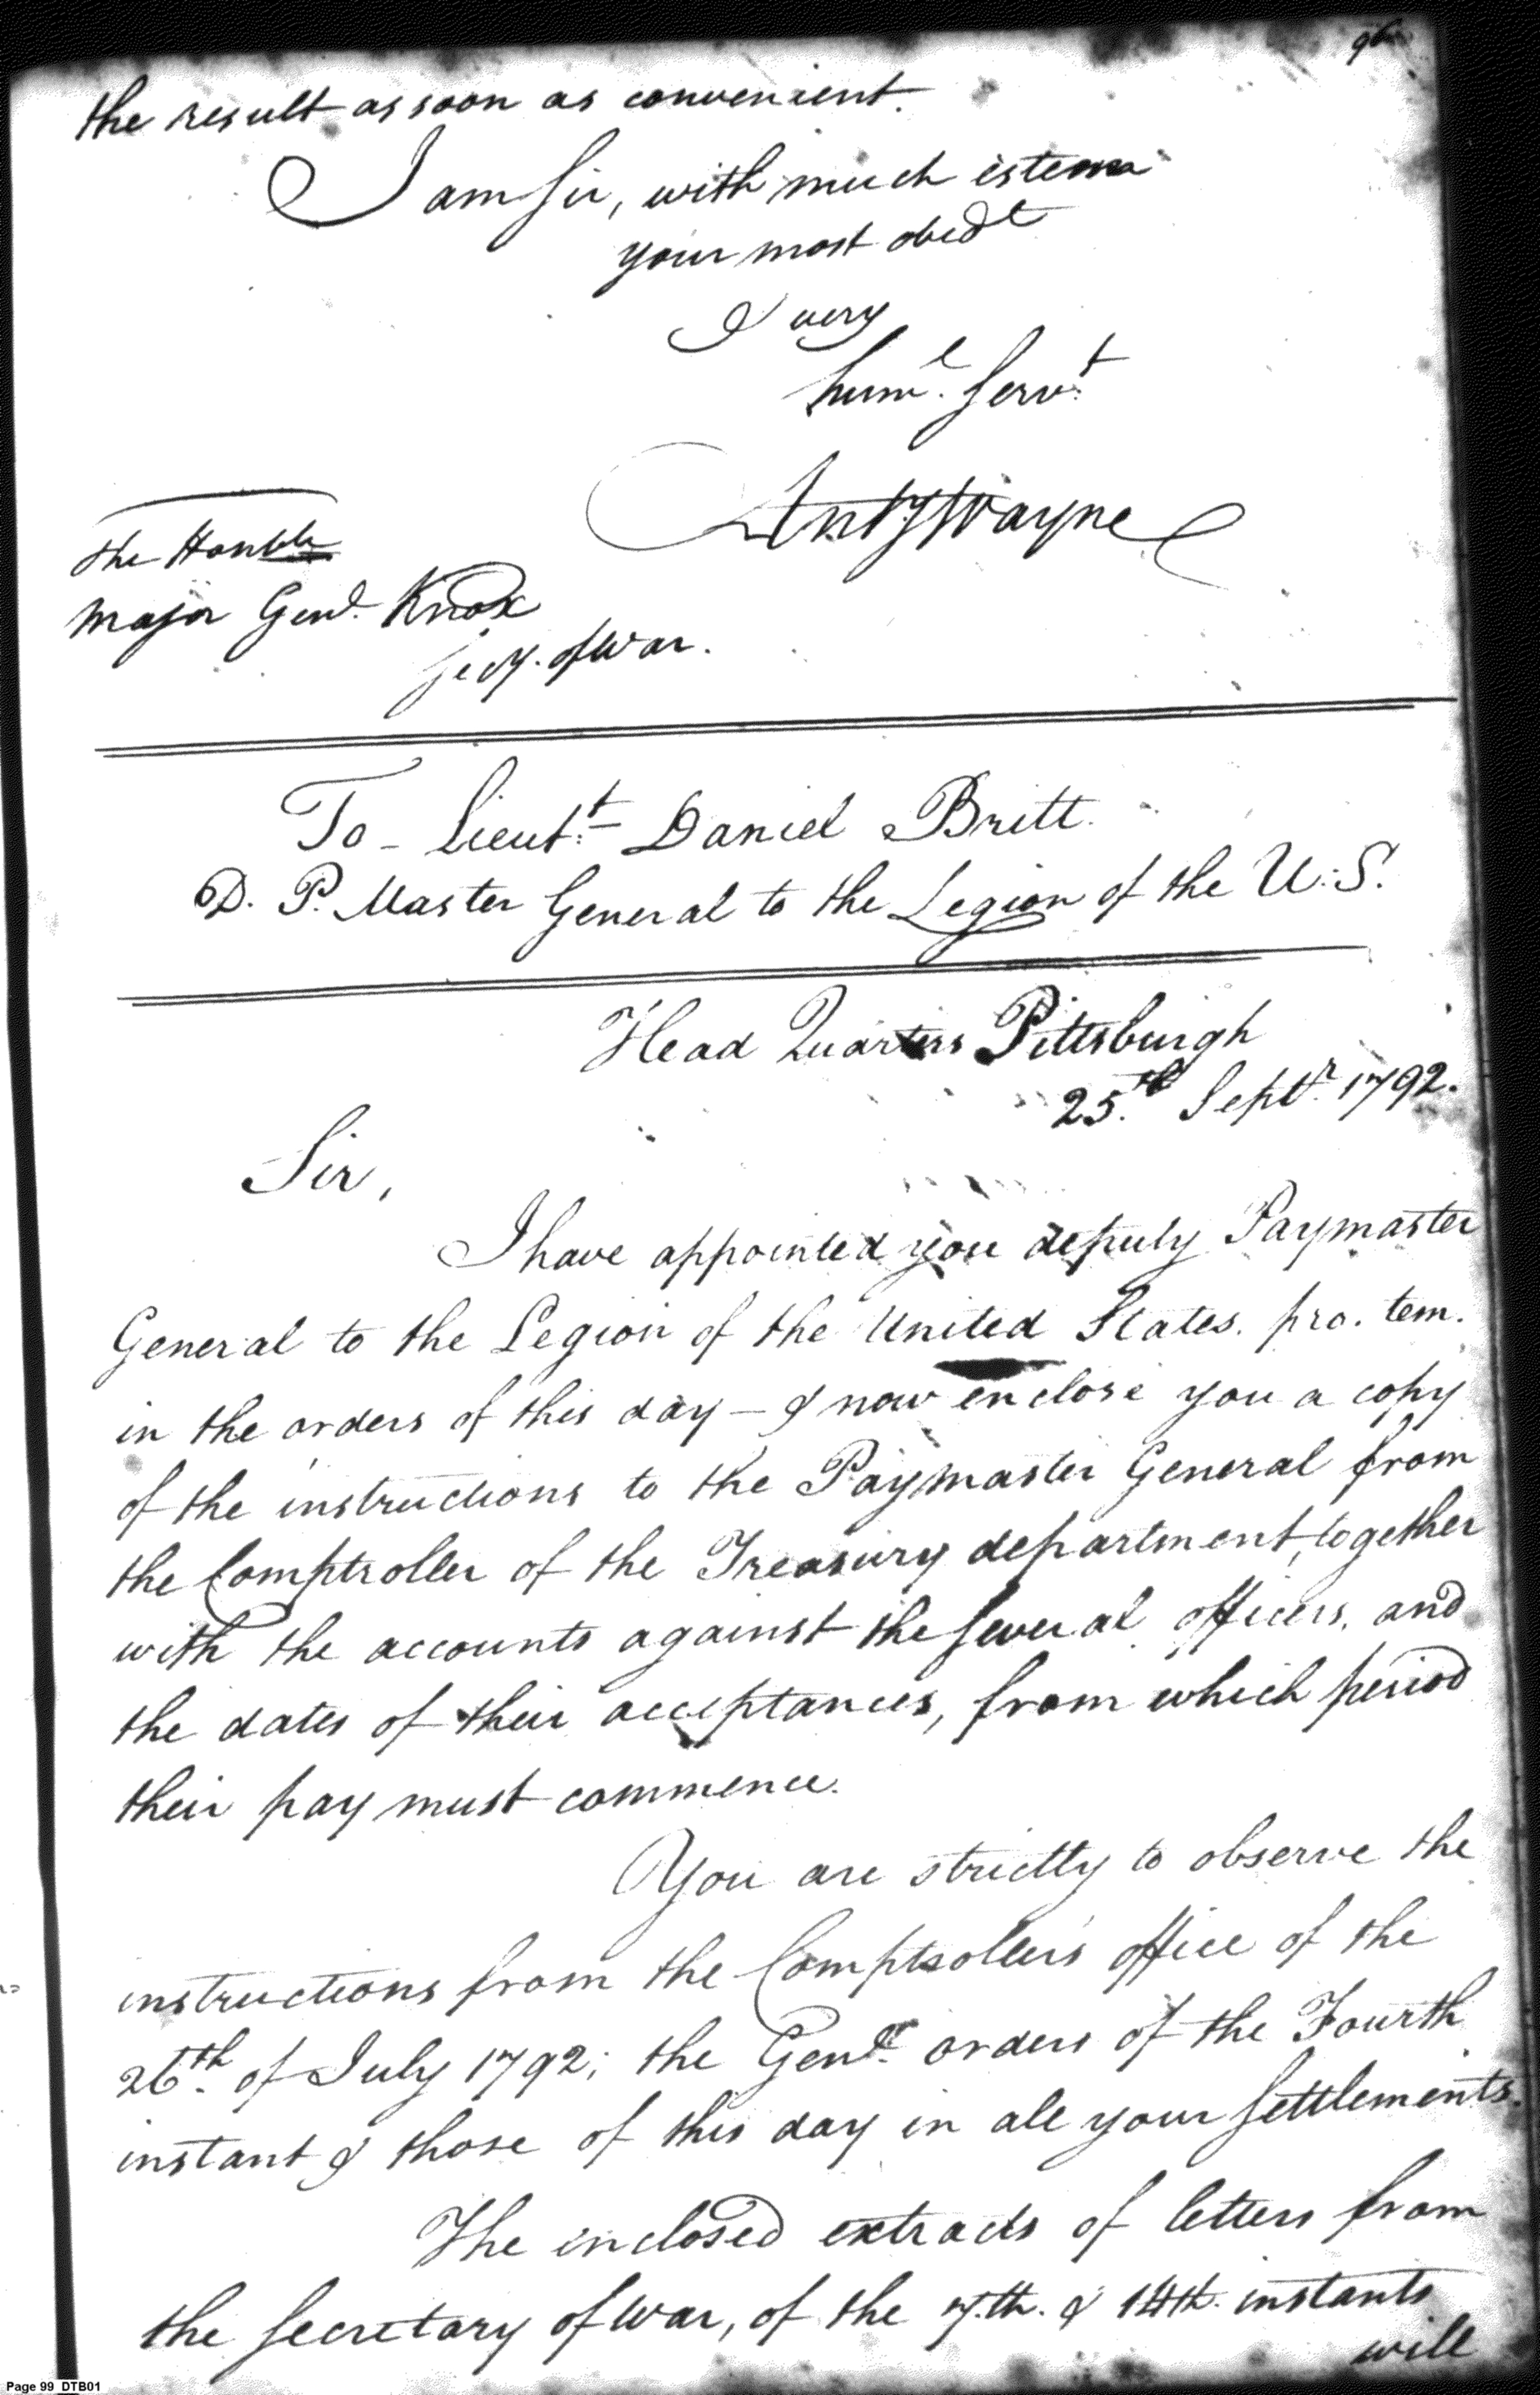 96
the result as soon as convenient.
I am Sir, with much esteem
your most obedt
& very
huml. Servt.
Anty Wayne
The Honble
Major Genl. Knox
Secy. of War.
To - Lieutt. Daniel Britt.
D. P. Master General to the Legion of the U. S.
Head Quarters Pittsburgh
25th. Septr. 1792.
Sir,
I have appointed you deputy Paymaster
General to the Legion of the United States. pro. tem.
in the orders of this day - I now enclose you a copy
of the instructions to the Paymaster General from
the Comptroller of the Treasury department, together
with the accounts against the several officers, and
the dates of their acceptances, from which period
their pay must commence.
You are strictly to observe the
instructions from the Comptroller's office of the
26th. of July 1792; the Genl. orders of the Fourth
instant & those of this day in all your settlements.
The inclosed extracts of letters from
the Secretary of War, of the 7.th. & 14th. instants
will
Page 99 DTB01